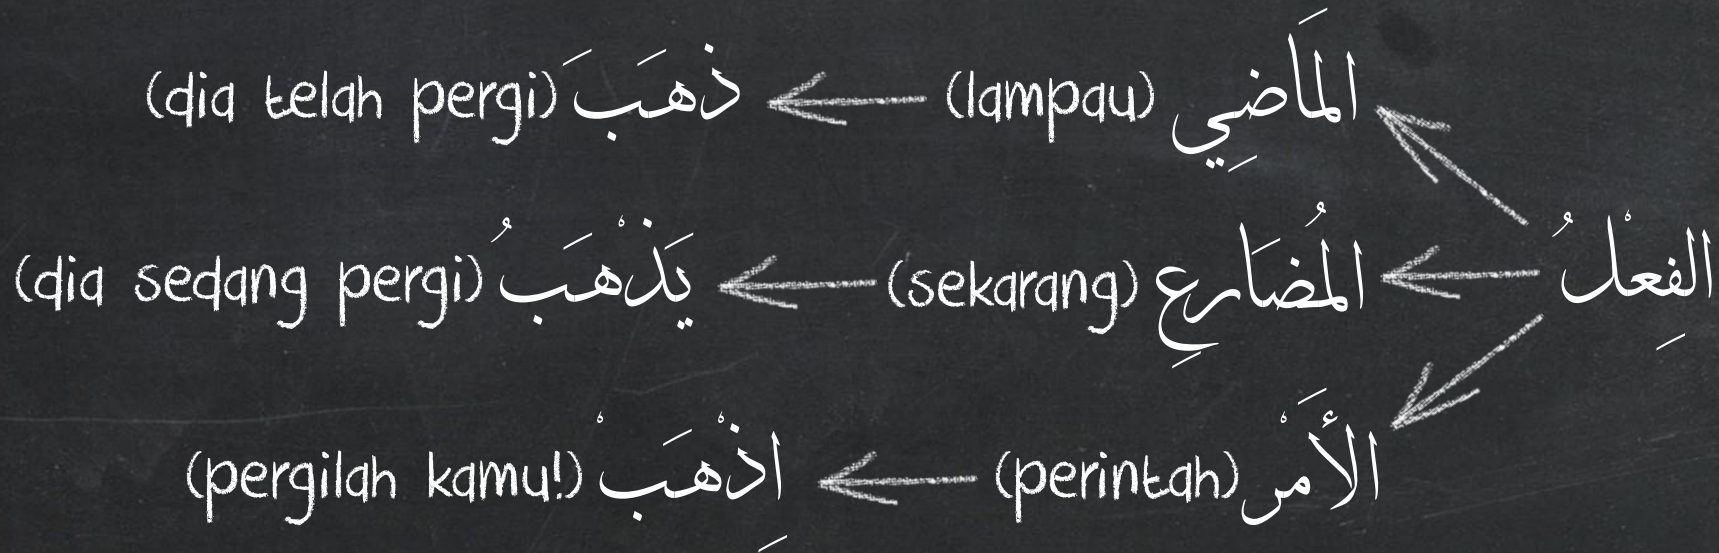 الْمَاضِي (lampau) ذَهَبَ (dia telah pergi)
الفِعْلُ
الْمُضَارِعِ (sekarang) يَذْهَبُ (dia sedang pergi)
الأَمْر (perintah) اِذْهَبْ (pergilah kamu!)